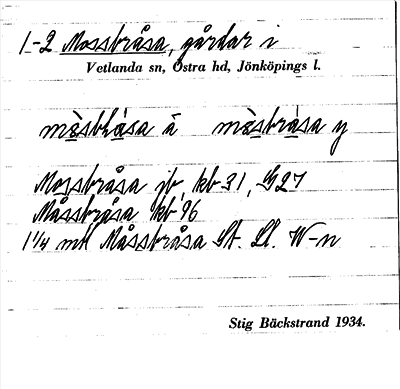 1-2 Mossbråsa, gårdar i
Vetlanda sn, Östra hd, Jönköpings l.
mòsbråsa ä mòsbråsa y
Mossbråsa jb, kb 31, G27
Måssbråsa kb 96
1 1/4 mtl Måssbråsa St. Ll. W-n
Stig Bäckstrand 1934.